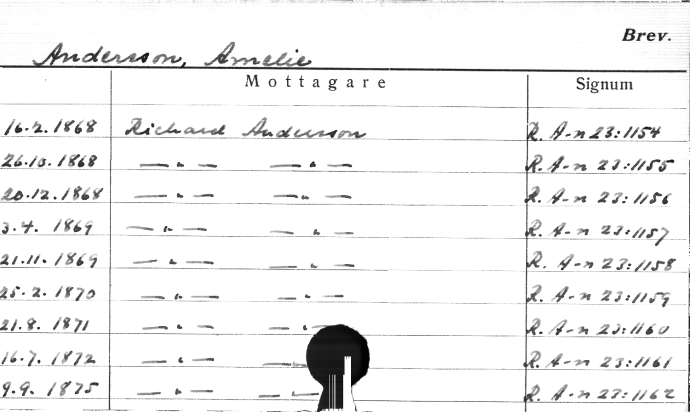 Brev.
Andersson, Amelie
Mottagare Signum
16.2.1868 Richard Andersson R. A-n 23:1154
26.10.1868 — " — — " — R. A-n 23:1155
20.12.1868 — " — — " — R. A-n 23:1156
3.4. 1869 — " — — " — R. A-n 23:1157
21.11. 1869 — " — — " — R. A-n 23:1158
25.2. 1870 — " — — " — R. A-n 23:1159
21.8. 1871 — " — — " — R. A-n 23:1160
16.7. 1872 — " — — R. A-n 23:1161
9.9. 1875 — " — — " — R. A-n 23:1162